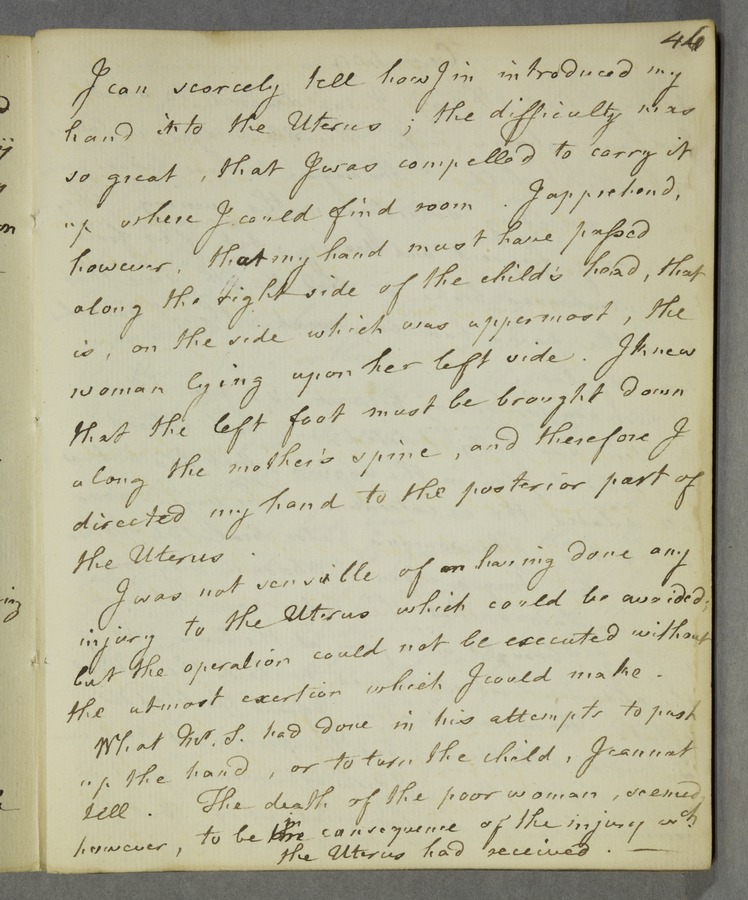 46
I can scarcely tell how I in introduced my
hand into the Uterus; the difficulty was
so great, that I was compelled to carry it
up where I could find room. I apprehend,
however, that my hand must have passed
along the right side of the child's head, that
is, on the side which was uppermost, the
woman lying upon her left side. I knew
that the left foot must be brought down
along the mother's spine, and therefore I
directed my hand to the posterior part of
the Uterus.
I was not sensible of having done any
injury to the Uterus which could be avoided;
but the operation could not be executed without
the utmost exertion which I could make.
What Mr. S. had done in his attempts to push
up the hand, or to turn the child, I cannot
tell. The death of the poor woman, seemed
however, to be in consequence of the injury wch
the Uterus had received. —